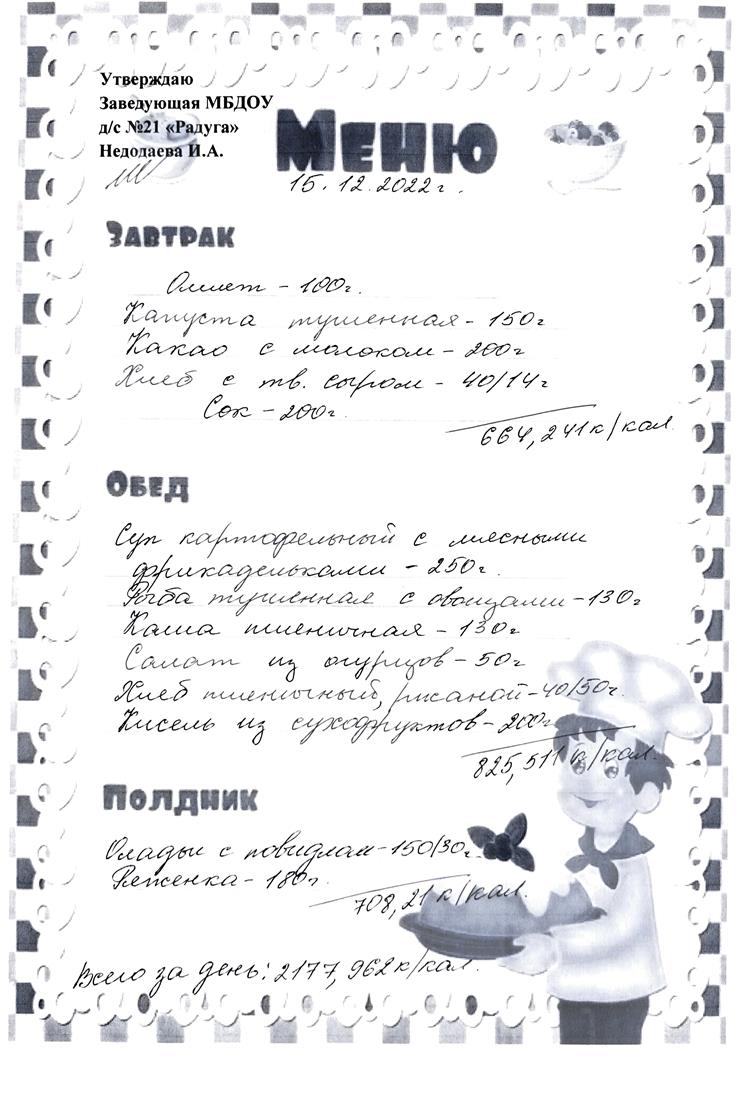 Утверждаю
Заведующая МБДОУ
д/с №21 «Радуга»
Недодаева И.А.
Меню
15.12.2022г.
Завтрак
Омлет - 100г.
Капуста тушенная - 150г
Какао с молоком - 200г
Хлеб с тв. сыром - 40/14г
Сок - 200г.
664,241к/кал.
Обед
Суп картофельный с мясными
фрикадельками - 250г.
Рыба тушенная с овощами - 130г
Каша пшеничная - 130г
Салат из огурцов - 50г
Хлеб пшеничный, ржаной - 40/50г.
Кисель из сухофруктов - 200г
825,511 к/кал.
Полдник
Оладьи с повидлам - 150/30г.
Ряженка - 180г.
708,21 к/кал.
Всего за день: 2177,962к/кал.